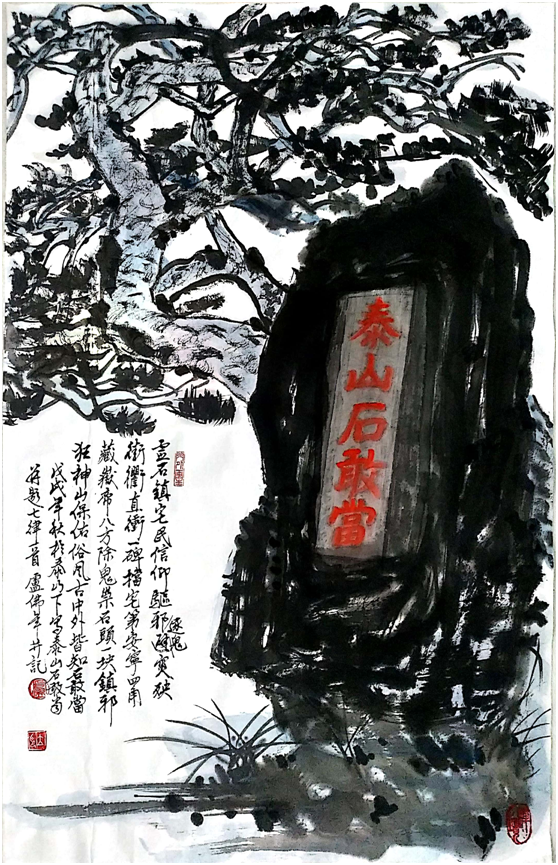 泰山石敢當
灵石鎮宅民信仰驅邪逐鬼避災殃
街衢直衝一碑擋宅第安寧四角
藏嶽帝八方除鬼祟石頭一块鎮邪
狂神山保佑俗風古中外皆知石敢當
戊戌年秋於泰山下写泰山石敢當
并題七律一首 盧年并記